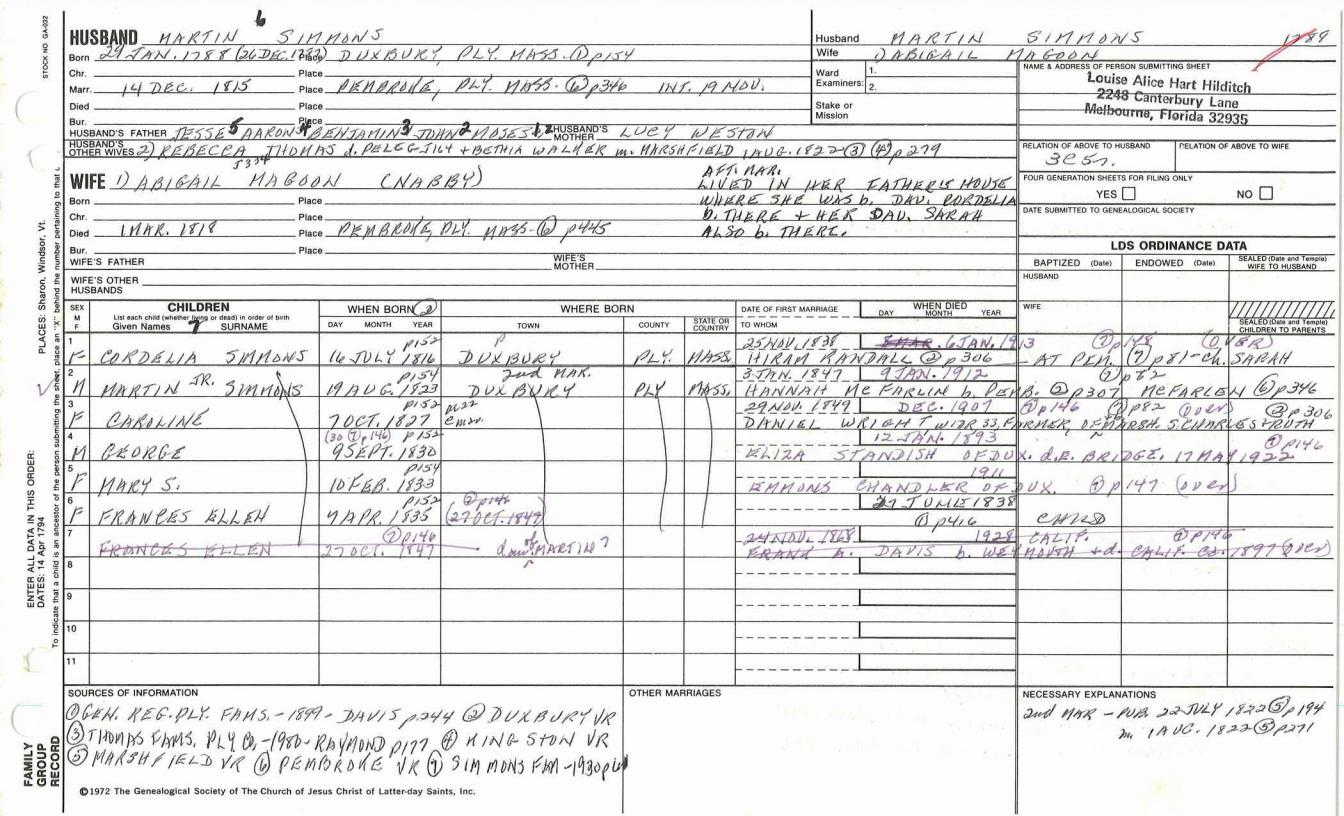 6
HUSBAND MARTIN SIMMONS
Born 29 JAN. 1788 (26 DEC. 1787) Place DUXBURY, PLY. MASS. ① p154
Chr. Place
Marr. 14 DEC. 1815 Place PEMBROKE, PLY. MASS. ⑥ p346 INT. 19 NOV.
Died Place
Bur. Place
HUSBAND'S FATHER JESSE 5 AARON 4 BENJAMIN 3 JOHN 2 MOSES 1 HUSBAND'S MOTHER LUCY WESTON
HUSBAND'S OTHER WIVES 2) REBECCA THOMAS d. PELEG + BETHIA WALKER m. MARSHFIELD 1 AUG. 1822 ③ ④ p279
WIFE 1) ABIGAIL MAGOON (NABBY)
Born Place
Chr. Place
Died 1 MAR. 1818 Place PEMBROKE, PLY. MASS. ⑥ p445
Bur. Place
AFT. MAR.
LIVED IN HER FATHER'S HOUSE
WHERE SHE WAS b. DAU. CORDELIA
b. THERE + HER DAU. SARAH
ALSO b. THERE.
WIFE'S FATHER WIFE'S MOTHER
WIFE'S OTHER HUSBANDS
Husband MARTIN SIMMONS 1789
Wife 1) ABIGAIL MAGOON
Ward Examiners: 1. 2.
Stake or Mission
NAME & ADDRESS OF PERSON SUBMITTING SHEET
Louise Alice Hart Hilditch
2248 Canterbury Lane
Melbourne, Florida 32935
RELATION OF ABOVE TO HUSBAND RELATION OF ABOVE TO WIFE
FOUR GENERATION SHEETS FOR FILING ONLY
YES NO
DATE SUBMITTED TO GENEALOGICAL SOCIETY
LDS ORDINANCE DATA
BAPTIZED (Date) ENDOWED (Date) SEALED (Date and Temple) WIFE TO HUSBAND
HUSBAND
WIFE
SEALED (Date and Temple) CHILDREN TO PARENTS
SEX M F
CHILDREN
List each child (whether living or dead) in order of birth
Given Names 7 SURNAME
WHEN BORN ②
DAY MONTH YEAR
WHERE BORN
TOWN COUNTY STATE OR COUNTRY
DATE OF FIRST MARRIAGE
TO WHOM
WHEN DIED
DAY MONTH YEAR
1 p152 25 NOV. 1838 6 JAN. 1913 ⑦ p148 (OVER)
F CORDELIA SIMMONS 16 JULY 1816 DUXBURY PLY. MASS. HIRAM RANDALL ② p306 - AT PEM. ⑦ p81-ch. SARAH
2 p154 2nd MAR. 3 JAN. 1847 9 JAN. 1912 ⑦ p82
M MARTIN JR. SIMMONS 19 AUG. 1823 DUXBURY PLY MASS. HANNAH McFARLIN b. PEMB. ② p307 McFARLEN ⑥ p346
3 p152 29 NOV. 1849 DEC. 1907 ⑦ p146 ⑦ p82 (over) ② p306
F CAROLINE 7 OCT. 1827 DANIEL WRIGHT WIDR 33, FARMER, OF MARSH. S. CHARLES + RUTH
4 (30 ⑦ p146) p152 12 JAN. 1893 ⑦ p146
M GEORGE 9 SEPT. 1830 ELIZA STANDISH OF DUX. d. E. BRIDGE. 17 MAY 1922
5 p154 1911
F MARY S. 10 FEB. 1833 EMMONS CHANDLER OF DUX. ⑦ p147 (over)
6 p152 ⑦ p146 27 JUNE 1838
F FRANCES ELLEN 7 APR. 1835 (27 OCT. 1847) ① p416 CHILD
7 ⑦ p146 24 NOV. 1868 1928 CALIF. ⑦ p146
FRANCES ELLEN 27 OCT. 1847 dau of MARTIN 7 FRANK A. DAVIS b. WEYMOUTH + d. CALIF. CA. 1897 (over)
8
9
10
11
SOURCES OF INFORMATION
① GEN. REG. PLY. FAMS. - 1899 - DAVIS p244 ② DUXBURY VR
③ THOMAS FAMS. PLY CO. - 1980 - RAYMOND p177 ④ KINGSTON VR
⑤ MARSHFIELD VR ⑥ PEMBROKE VR ⑦ SIMMONS FAM - 1930
OTHER MARRIAGES
NECESSARY EXPLANATIONS
2nd MAR - PUB. 22 JULY 1822 ⑤ p194
m. 1 AUG. 1822 ⑤ p271
©1972 The Genealogical Society of The Church of Jesus Christ of Latter-day Saints, Inc.
STOCK NO GA-032
PLACES: Sharon, Windsor, Vt.
ENTER ALL DATA IN THIS ORDER:
DATES: 14 Apr 1794
To indicate that a child is an ancestor of the person submitting the sheet, place an "X" behind the number pertaining to that
FAMILY GROUP RECORD